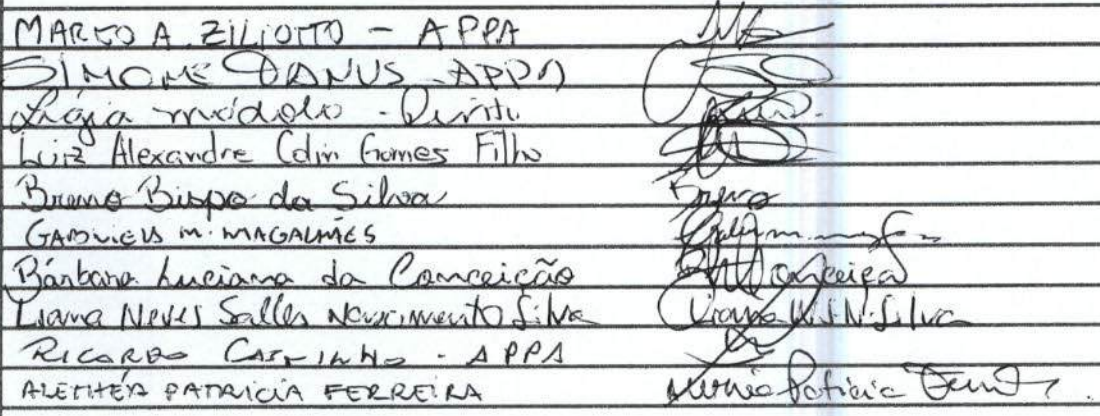 MARCO A. ZILIOTTO - APPA
SIMONE DANUS - APPA
Ligia módolo -
Luiz Alexandre Colin Gomes Filho
Bruno Bispo da Silva Bruno
M. MAGALHÃES
Bárbara Luciana da Conceição Conceição
Liana Neves Salles Nascimento Silva Liana N. S. N. Silva
RICARDO - APPA
ALETHÉA PATRICIA FERREIRA Patricia